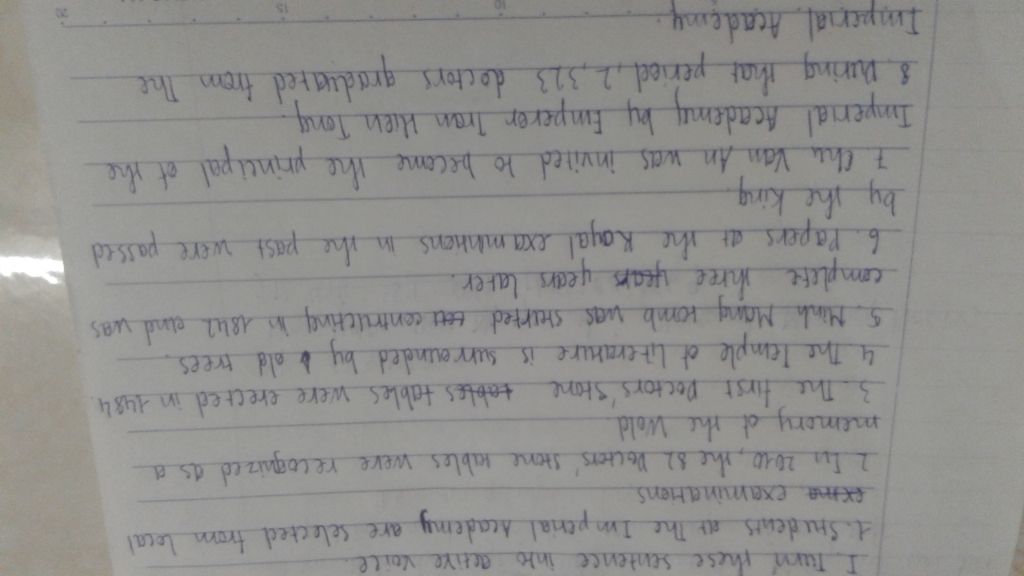 I. Turn these sentence into active voice.
1. Students at the Imperial Academy are selected from local
examinations.
2. In 2010, the 82 Doctors' stone tables were recognized as a
memory of the Wold
3. The first Doctors' stone tables tables were erected in 1484.
4. The Temple of Literature is surrounded by old trees.
5. Minh Mang tomb was started contructing in 1842 and was
complete three years years later.
6. Papers at the Royal examintions in the past were passed
by the king.
7. Chu Van An was invited to become the principal of the
Imperial Academy by Emperor Tran Hien Tong.
8. During that period, 2,323 doctors graduated from the
Imperial Academy.
10
15
20